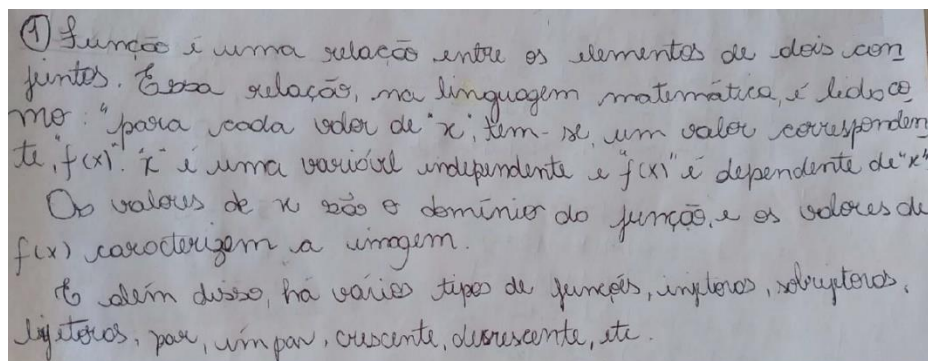 ① Função é uma relação entre os elementos de dois con
juntos. Essa relação, na linguagem matemática, é lida co
mo: "para cada valor de "x", tem-se um valor corresponden
te, "f(x)". "x" é uma variável independente e "f(x)" é dependente de "x"
Os valores de x são o domínio da função, e os valores de
f(x) caracterizam a imagem.
E além disso, há vários tipos de funções, injetoras, sobrejetoras,
bijetoras, par, ímpar, crescente, decrescente, etc.